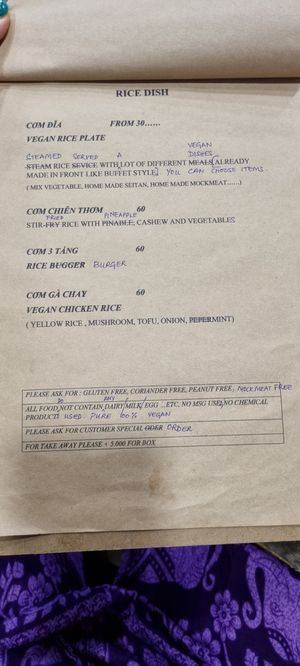 RICE DISH
CƠM ĐĨA FROM 30......
VEGAN RICE PLATE
VEGAN
STEAMED SERVED A DISHES
STEAM RICE SEVICE WITH LOT OF DIFFERENT MEALS (ALREADY
MADE IN FRONT LIKE BUFFET STYLE) YOU CAN CHOOSE ITEMS.
( MIX VEGETABLE, HOME MADE SEITAN, HOME MADE MOCKMEAT......)
CƠM CHIÊN THƠM 60
FRIED PINEAPPLE
STIR-FRY RICE WITH PINABLE, CASHEW AND VEGETABLES
CƠM 3 TẦNG 60
RICE BUGGER BURGER
CƠM GÀ CHAY 60
VEGAN CHICKEN RICE
( YELLOW RICE , MUSHROOM, TOFU, ONION, PEPERMINT)
PLEASE ASK FOR : GLUTEN FREE, CORIANDER FREE, PEANUT FREE, MOCKMEAT FREE
DO ANY
ALL FOOD NOT CONTAIN DAIRY/MILK/EGG ...ETC, NO MSG USE, NO CHEMICAL
PRODUCTS USED. PURE 100% VEGAN
PLEASE ASK FOR CUSTOMER SPECIAL ODER ORDER
FOR TAKE AWAY PLEASE + 5.000 FOR BOX